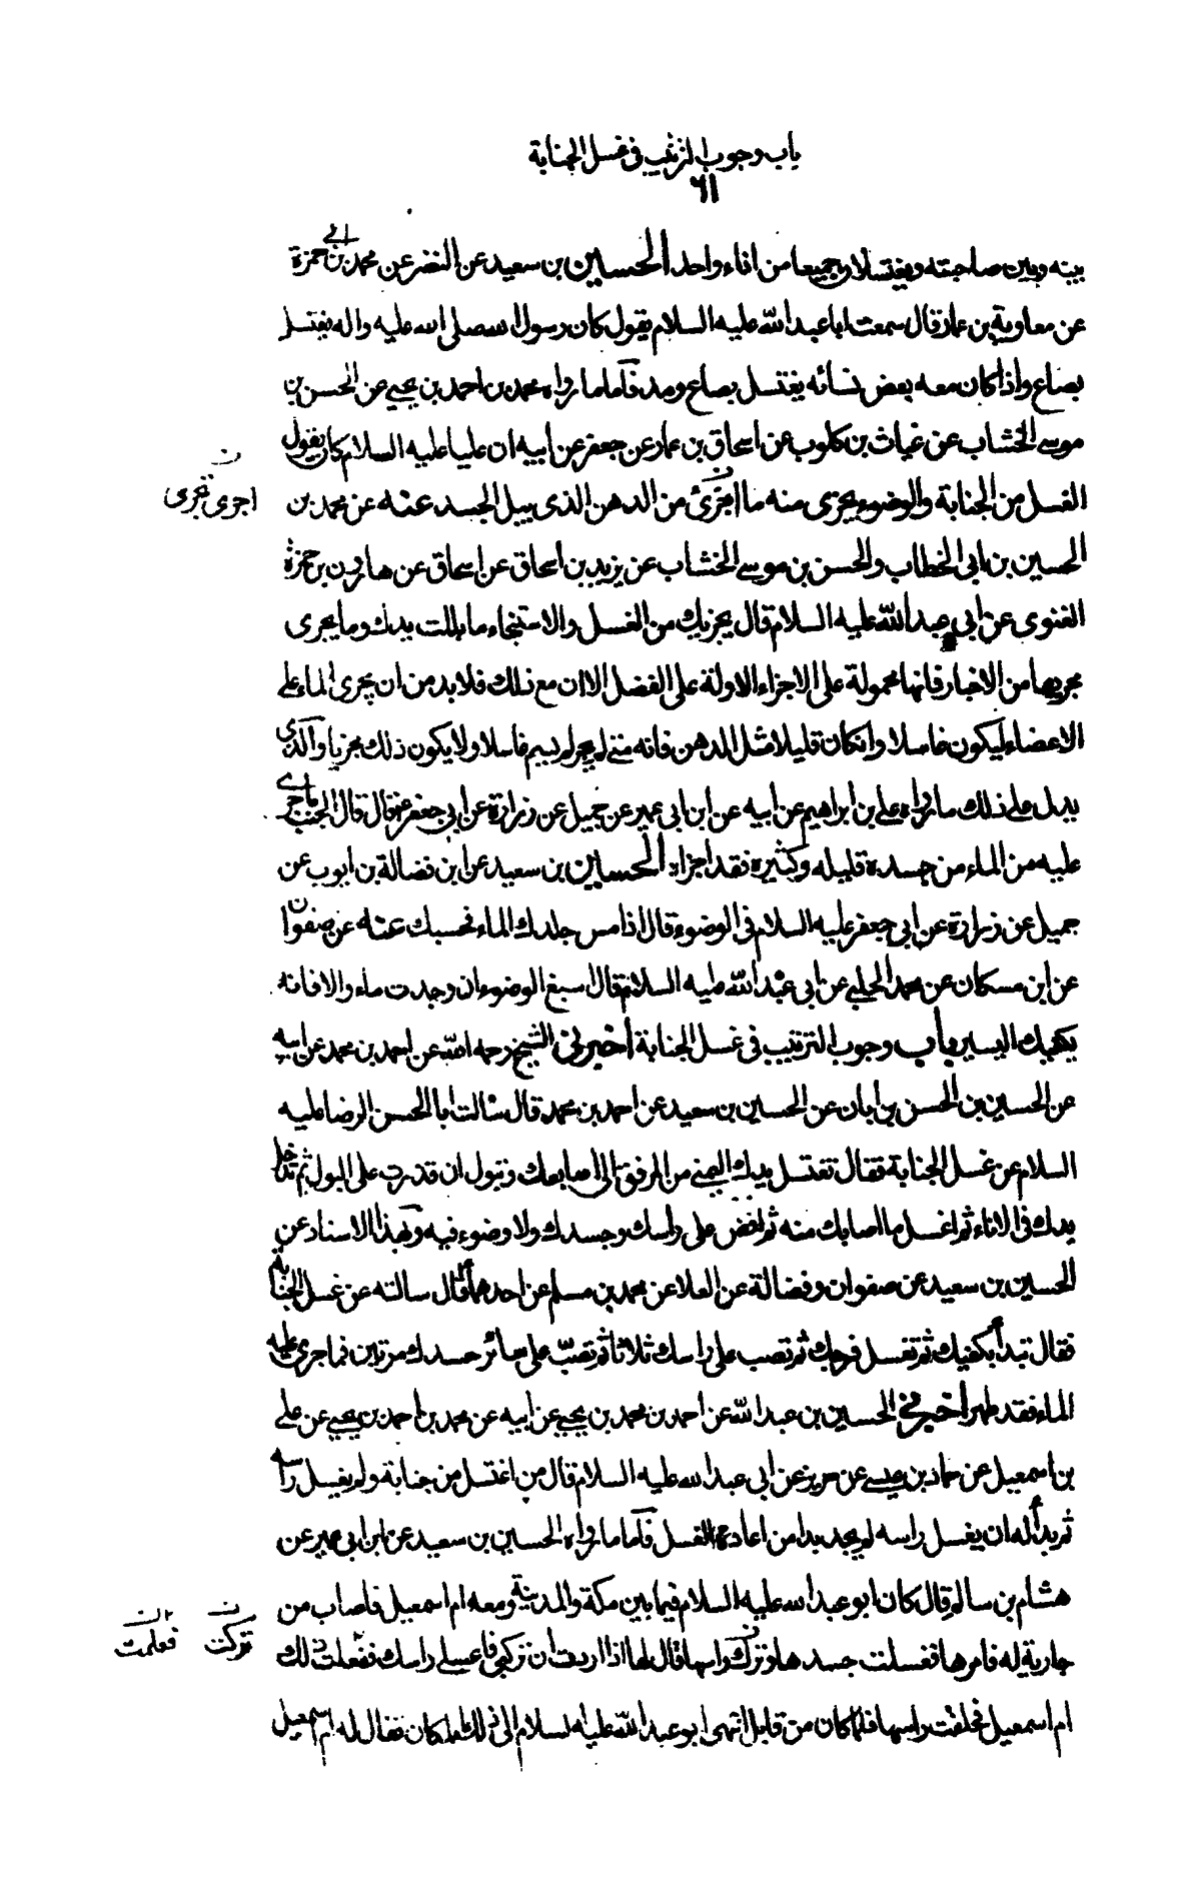 باب وجوب الترتيب فى غسل الجنابة
٦١
بينه وبين صاحبته ويغتسلان جميعا من اناء واحد الحسين بن سعيد عن النضر عن محمد بن ابى حمزة
عن معاوية بن عمار قال سمعت ابا عبد الله عليه السلام يقول كان رسول الله صلى الله عليه واله يغتسل
بصاع واذا كان معه بعض نسائه يغتسل بصاع ومد فاما ما رواه محمد بن احمد بن يحيى عن الحسن بن
موسى الخشاب عن غياث بن كلوب عن اسحاق بن عمار عن جعفر عن ابيه ان عليا عليه السلام كان يقول
الغسل من الجنابة والوضوء يجزى منه ما اجزئ من الدهن الذى يبل الجسد عنه عن محمد بن
ن
اجرى نجرى
الحسين بن ابى الخطاب والحسن بن موسى الخشاب عن يزيد بن اسحاق عن اسحاق عن هارون بن حمزة
الغنوى عن ابى عبد الله عليه السلام قال يجزيك من الغسل والاستنجاء ما بللت يدك وما يجرى
مجريها من الاخبار فانها محمولة على الاجزاء الاولة على الفضل الا ان مع ذلك فلا بد من ان يجرى الماء على
الاعضاء ليكون غاسلا وان كان قليلا مثل الدهن فانه متى لم يجر لم يسم غاسلا ولا يكون ذلك مجزيا والذى
يدل على ذلك ما رواه على بن ابراهيم عن ابيه عن ابن ابى عمير عن جميل عن زرارة عن ابى جعفر ع قال قال الجنب ما جرى
عليه من الماء من جسده قليله وكثيره فقد اجزاه الحسين بن سعيد عن ابن فضالة بن ايوب عن
جميل عن زرارة عن ابى جعفر عليه السلام فى الوضوء قال اذا مس جلدك الماء فحسبك عنه عن صفوان
عن ابن مسكان عن محمد الحلبى عن ابى عبد الله عليه السلام قال اسبغ الوضوء ان وجدت ماء والا فانه
يكفيك اليسير باب وجوب الترتيب فى غسل الجنابة اخبرنى الشيخ رحمه الله عن احمد بن محمد عن ابيه
عن الحسين بن الحسن بن ابان عن الحسين بن سعيد عن احمد بن محمد قال سالت ابا الحسن الرضا عليه
السلام عن غسل الجنابة فقال تغتسل يدك اليمنى من المرفق الى اصابعك وتبول ان قدرت على البول ثم تدخل
يدك فى الاناء ثم اغسل ما اصابك منه ثم افض على راسك وجسدك ولا وضوء فيه وبهذا الاسناد عن
الحسين بن سعيد عن صفوان وفضالة عن العلا عن محمد بن مسلم عن احدهما ع قال سالته عن غسل الجنابة
فقال تبدأ بكفيك ثم تغسل فرجك ثم تصب على راسك ثلاثا ثم تصب على سائر جسدك مرتين فما جرى عليه
الماء فقد طهر اخبرنى الحسين بن عبد الله عن احمد بن محمد بن يحيى عن ابيه عن محمد بن احمد بن يحيى عن على
بن اسمعيل عن حماد بن عيسى عن حريز عن ابى عبد الله عليه السلام قال من اغتسل من جنابة ولم يغسل راسه
ثم بدأ له ان يغسل راسه لم يجد بدا من اعادة الغسل فاما ما رواه الحسين بن سعيد عن ابن ابى عمير عن
هشام بن سالم قال كان ابو عبد الله عليه السلام فيما بين مكة والمدينة ومعه ام اسمعيل فاصاب من
جارية له فامرها فغسلت جسدها وتركت راسها قال لها اذا اردت ان تركبى فاغسلى راسك ففعلت ذلك
ن
تركت
فعلمت
ام اسمعيل فحلقت راسها فلما كان من قابل انتهى ابو عبد الله عليه السلام الى ذلك المكان فقال له ام اسمعيل